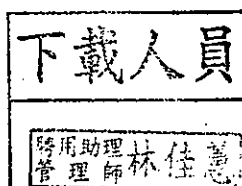 下載人員
聘用助理
管理師
林佳蕙